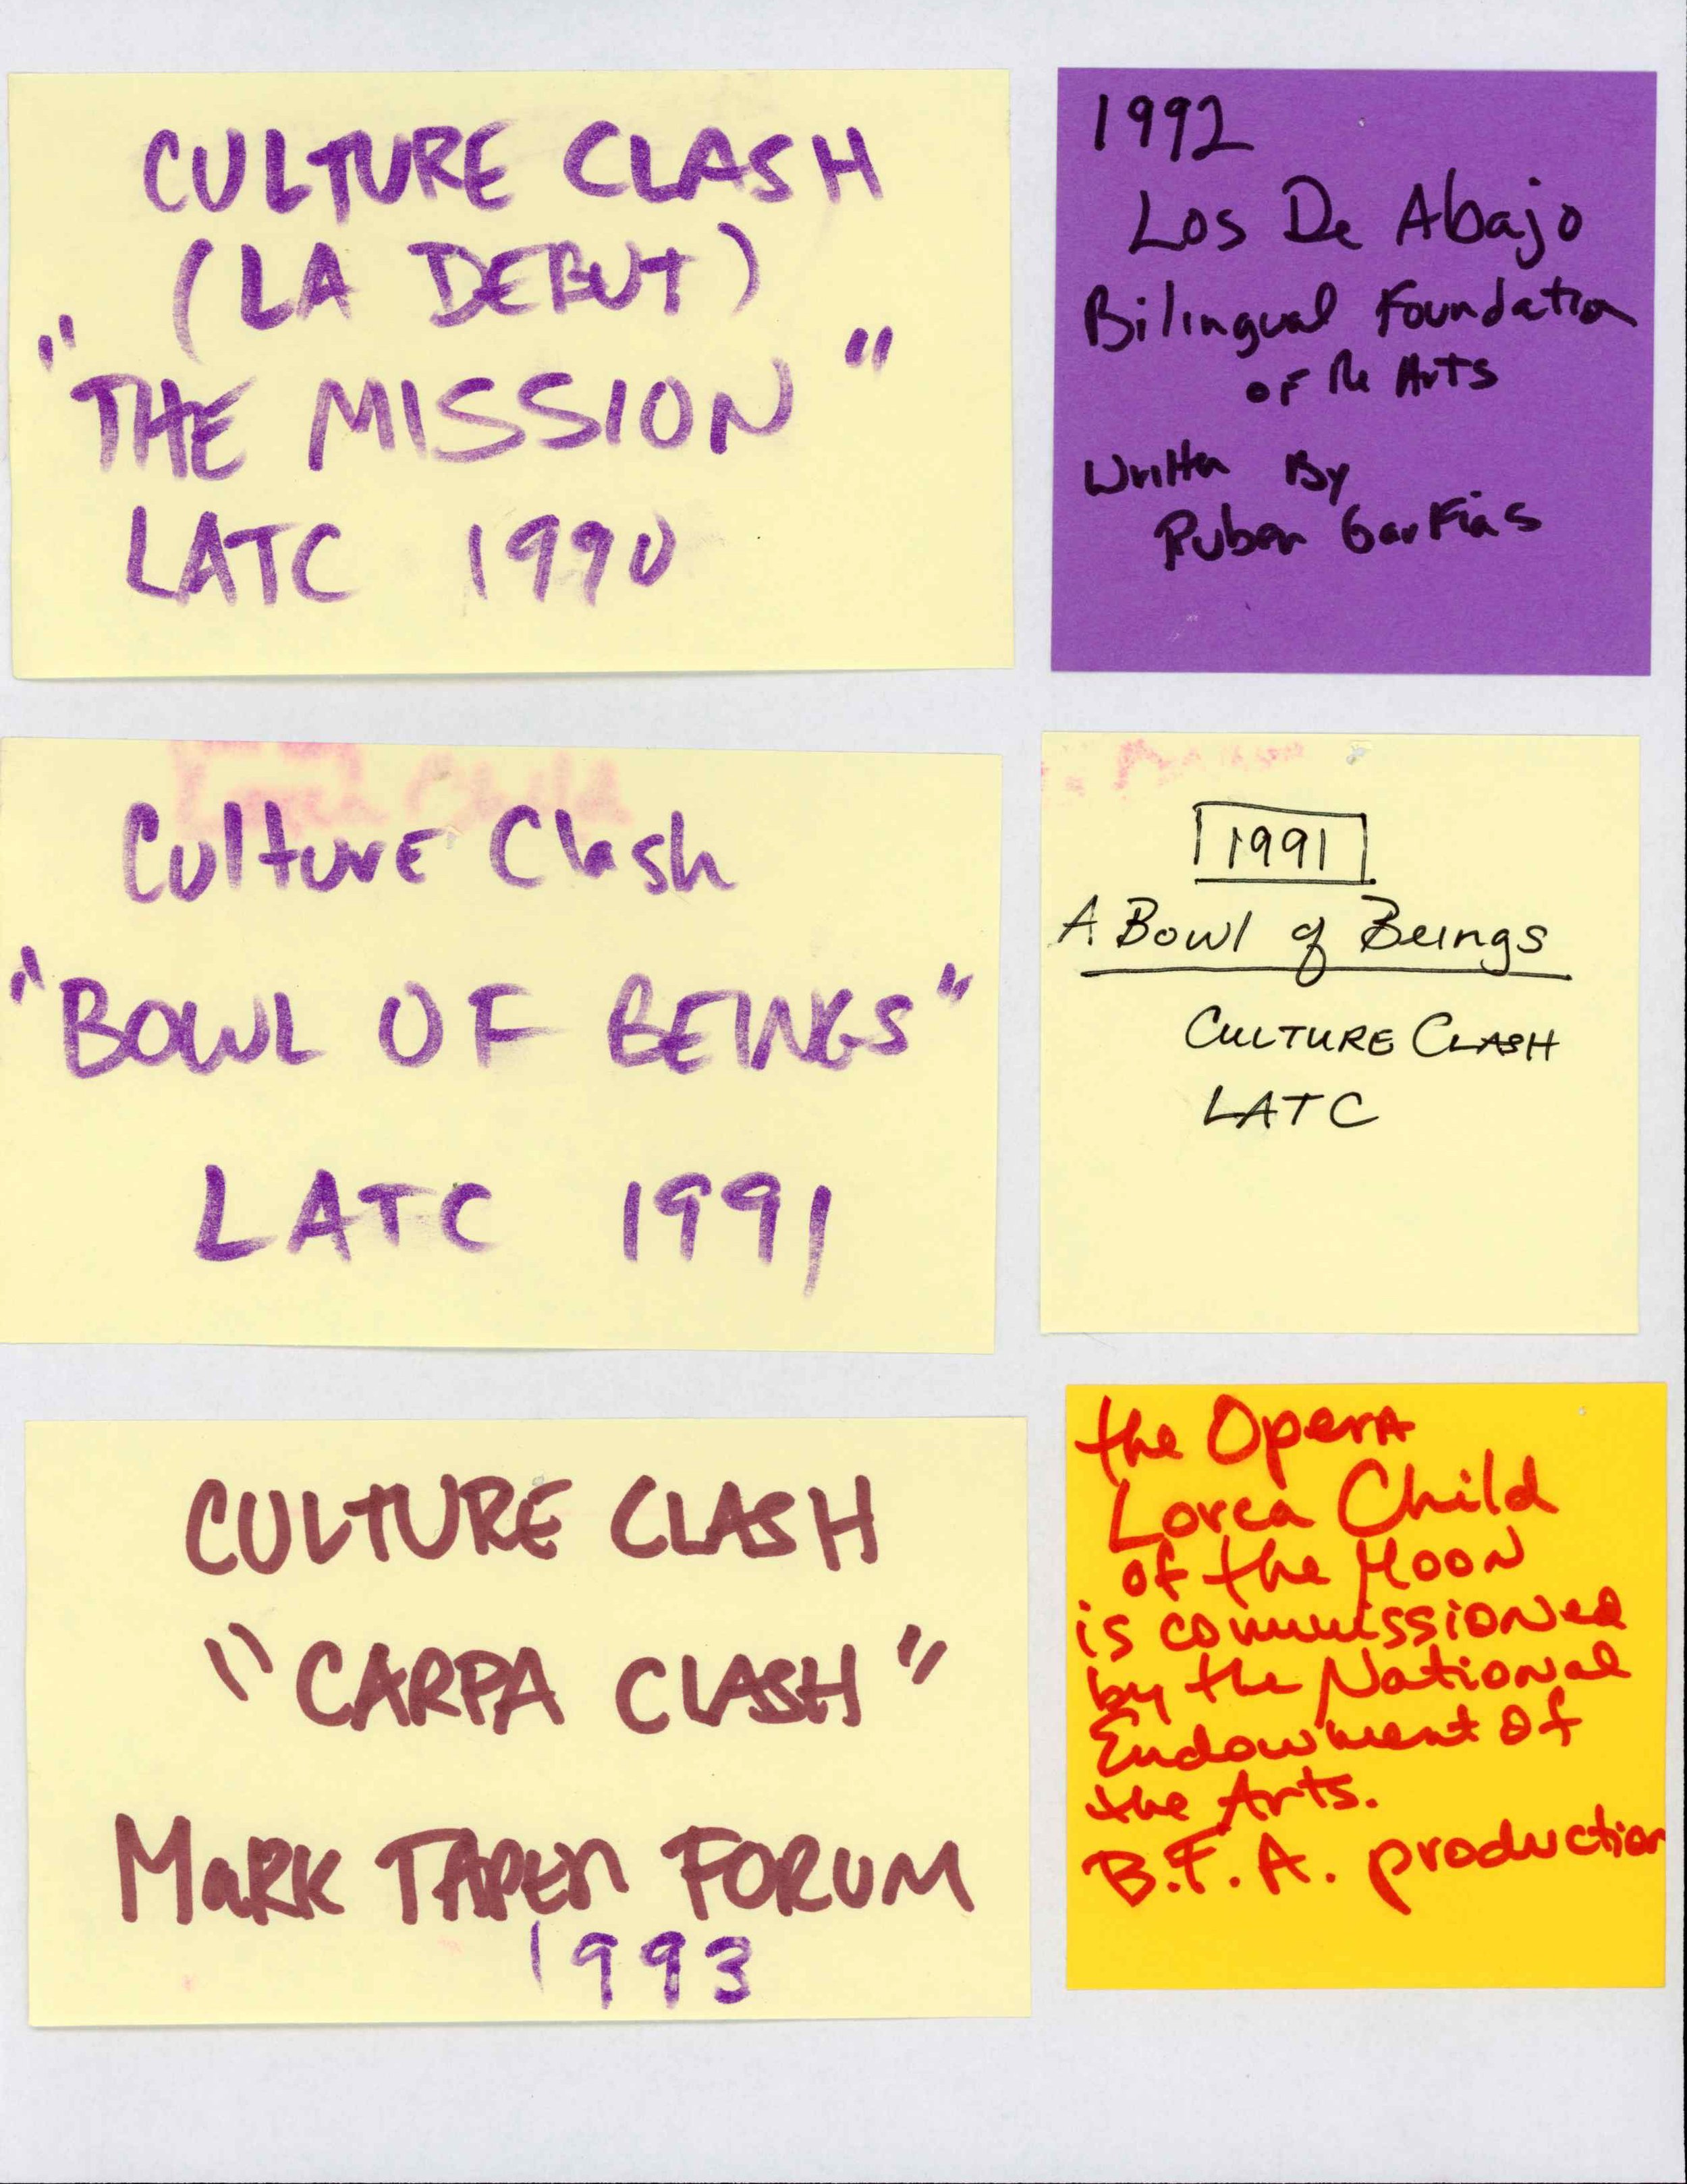 CULTURE CLASH
(LA DEBUT)
"THE MISSION"
LATC 1990
1992
Los De Abajo
Bilingual Foundation
of the Arts
Written By
Ruben Garfias
Culture Clash
"BOWL OF BEINGS"
LATC 1991
1991
A Bowl of Beings
CULTURE CLASH
LATC
CULTURE CLASH
"CARPA CLASH"
MaRK TAPER FORUM
1993
the Opera
Lorca Child
of the Moon
is commissioned
by the National
Endowment of
the Arts.
B.F.A. production